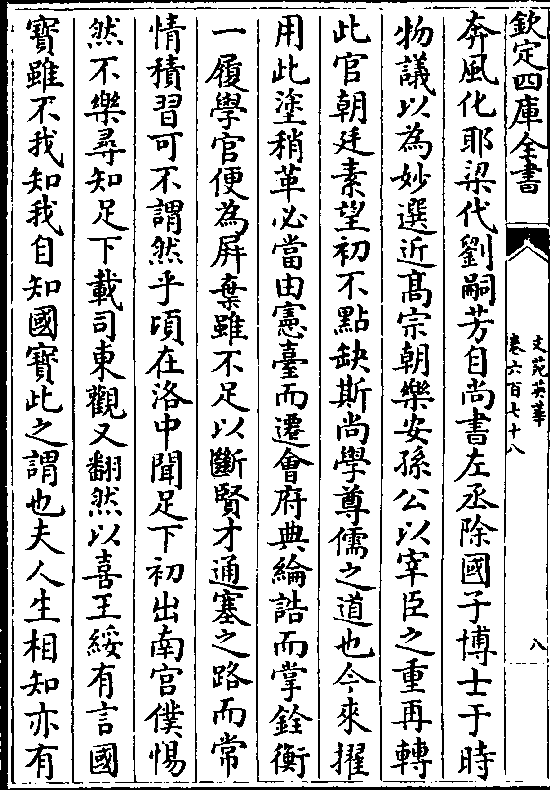 欽定四庫全書
文苑英華
卷六百七十八
八
奔風化耶梁代劉嗣芳自尚書左丞除國子博士于時
物議以為妙選近髙宗朝樂安孫公以宰臣之重再轉
此官朝廷素望初不點缺斯尚學尊儒之道也今來擢
用此塗稍革必當由憲臺而遷會府典綸誥而掌銓衡
一履學官便為屏棄雖不足以斷賢才通塞之路而常
情積習可不謂然乎頃在洛中聞足下初出南宫僕惕
然不樂尋知足下載司東觀又翻然以喜王綏有言國
寶雖不我知我自知國寶此之謂也夫人生相知亦有